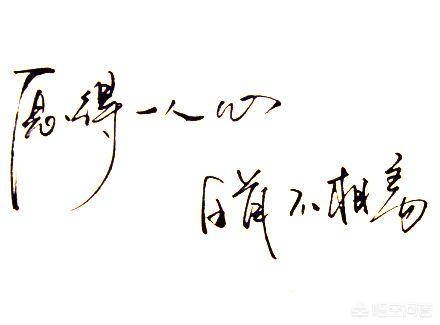 愿得一人心
白首不相离
悟空问答